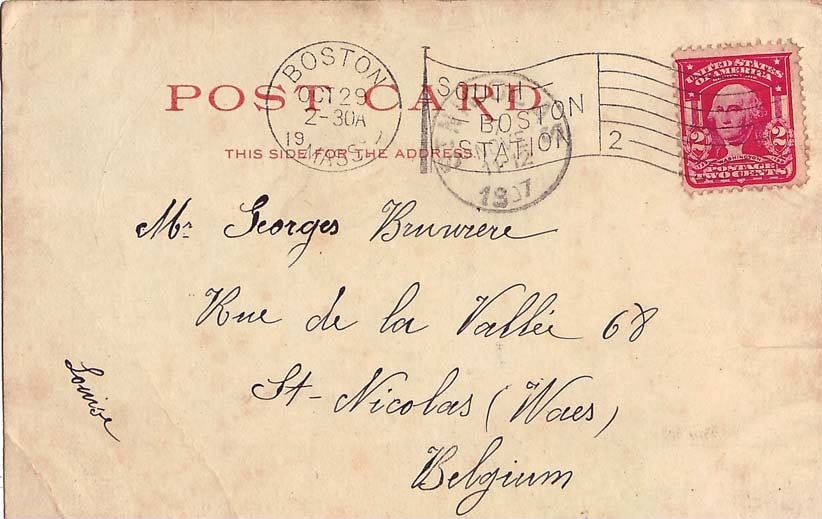 BOSTON
OCT 29
2-30A
19
MASS.
POST CARD
SOUTH
BOSTON
STATION
2
1907
THIS SIDE FOR THE ADDRESS.
UNITED STATES
OF AMERICA
2 2
WASHINGTON
POSTAGE
TWO CENTS
Mr Georges
Rue de la Vallée 68
St-Nicolas (Waes)
Belgium
Louise